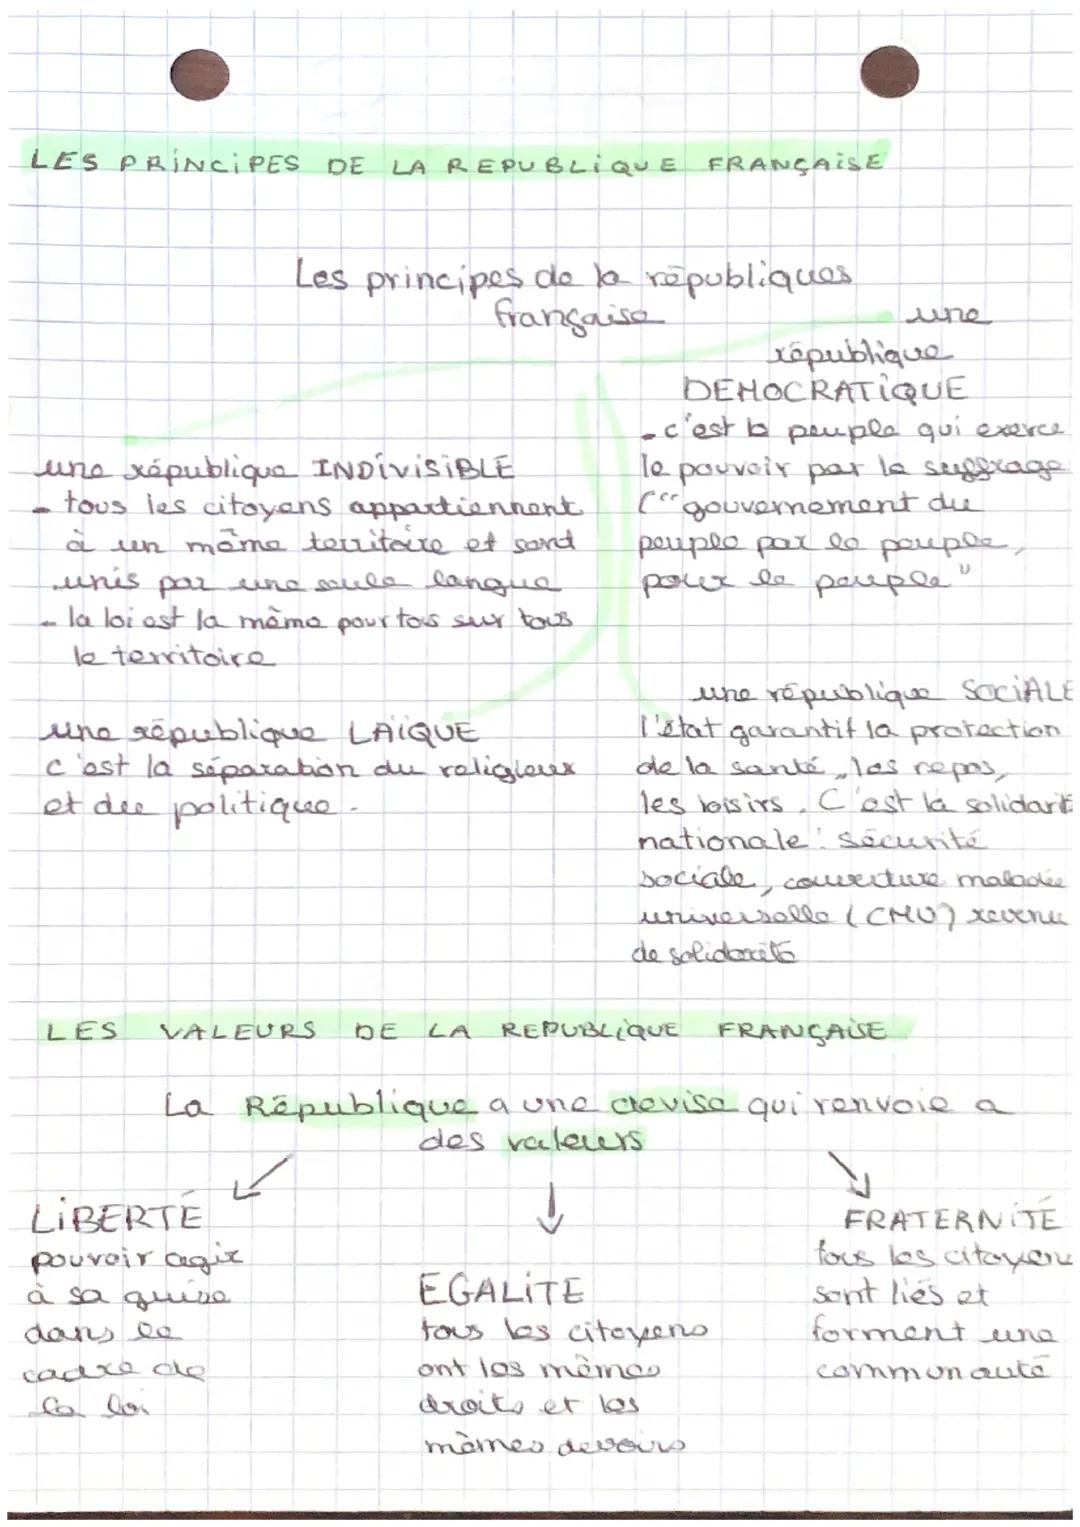 LES PRINCIPES DE LA REPUBLIQUE FRANÇAISE
Les principes de la républiques
française
une
république
DEMOCRATIQUE
- c'est le peuple qui exerce
le pouvoir par le suffrage
(""gouvernement du
peuple par le peuple,
pour le peuple"
une république INDIVISIBLE
- tous les citoyens appartiennent
à un même territoire et sont
unis par une seule langue
- la loi est la même pour tous sur tous
le territoire
une république LAÏQUE
c'est la séparation du religieux
et du politique.
une république SOCIALE
l'état garantit la protection
de la santé, les repos,
les loisirs. C'est la solidarité
nationale : sécurité
sociale, couverture maladie
universelle (CMU) revenu
de solidarité
LES VALEURS DE LA REPUBLIQUE FRANÇAISE
La République a une devise qui renvoie a
des valeurs
LIBERTÉ
pouvoir agir
à sa guise
dans le
cadre de
la loi
EGALITE
tous les citoyens
ont les mêmes
droits et les
mêmes devoirs
FRATERNITÉ
tous les citoyens
sont liés et
forment une
communauté